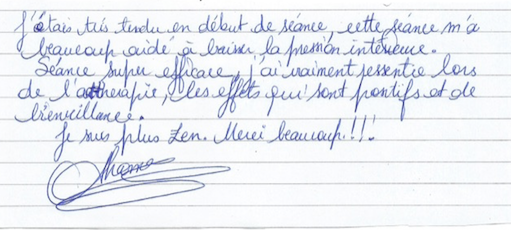 J'étais très tendu en début de séance, cette séance m'a
beaucoup aidé à baisser la pression intérieure.
Séance super efficace, j'ai vraiment ressentie lors
de l'arthérapie, les effets qui sont positifs et de
bienveillance.
Je suis plus zen. Merci beaucoup!!!